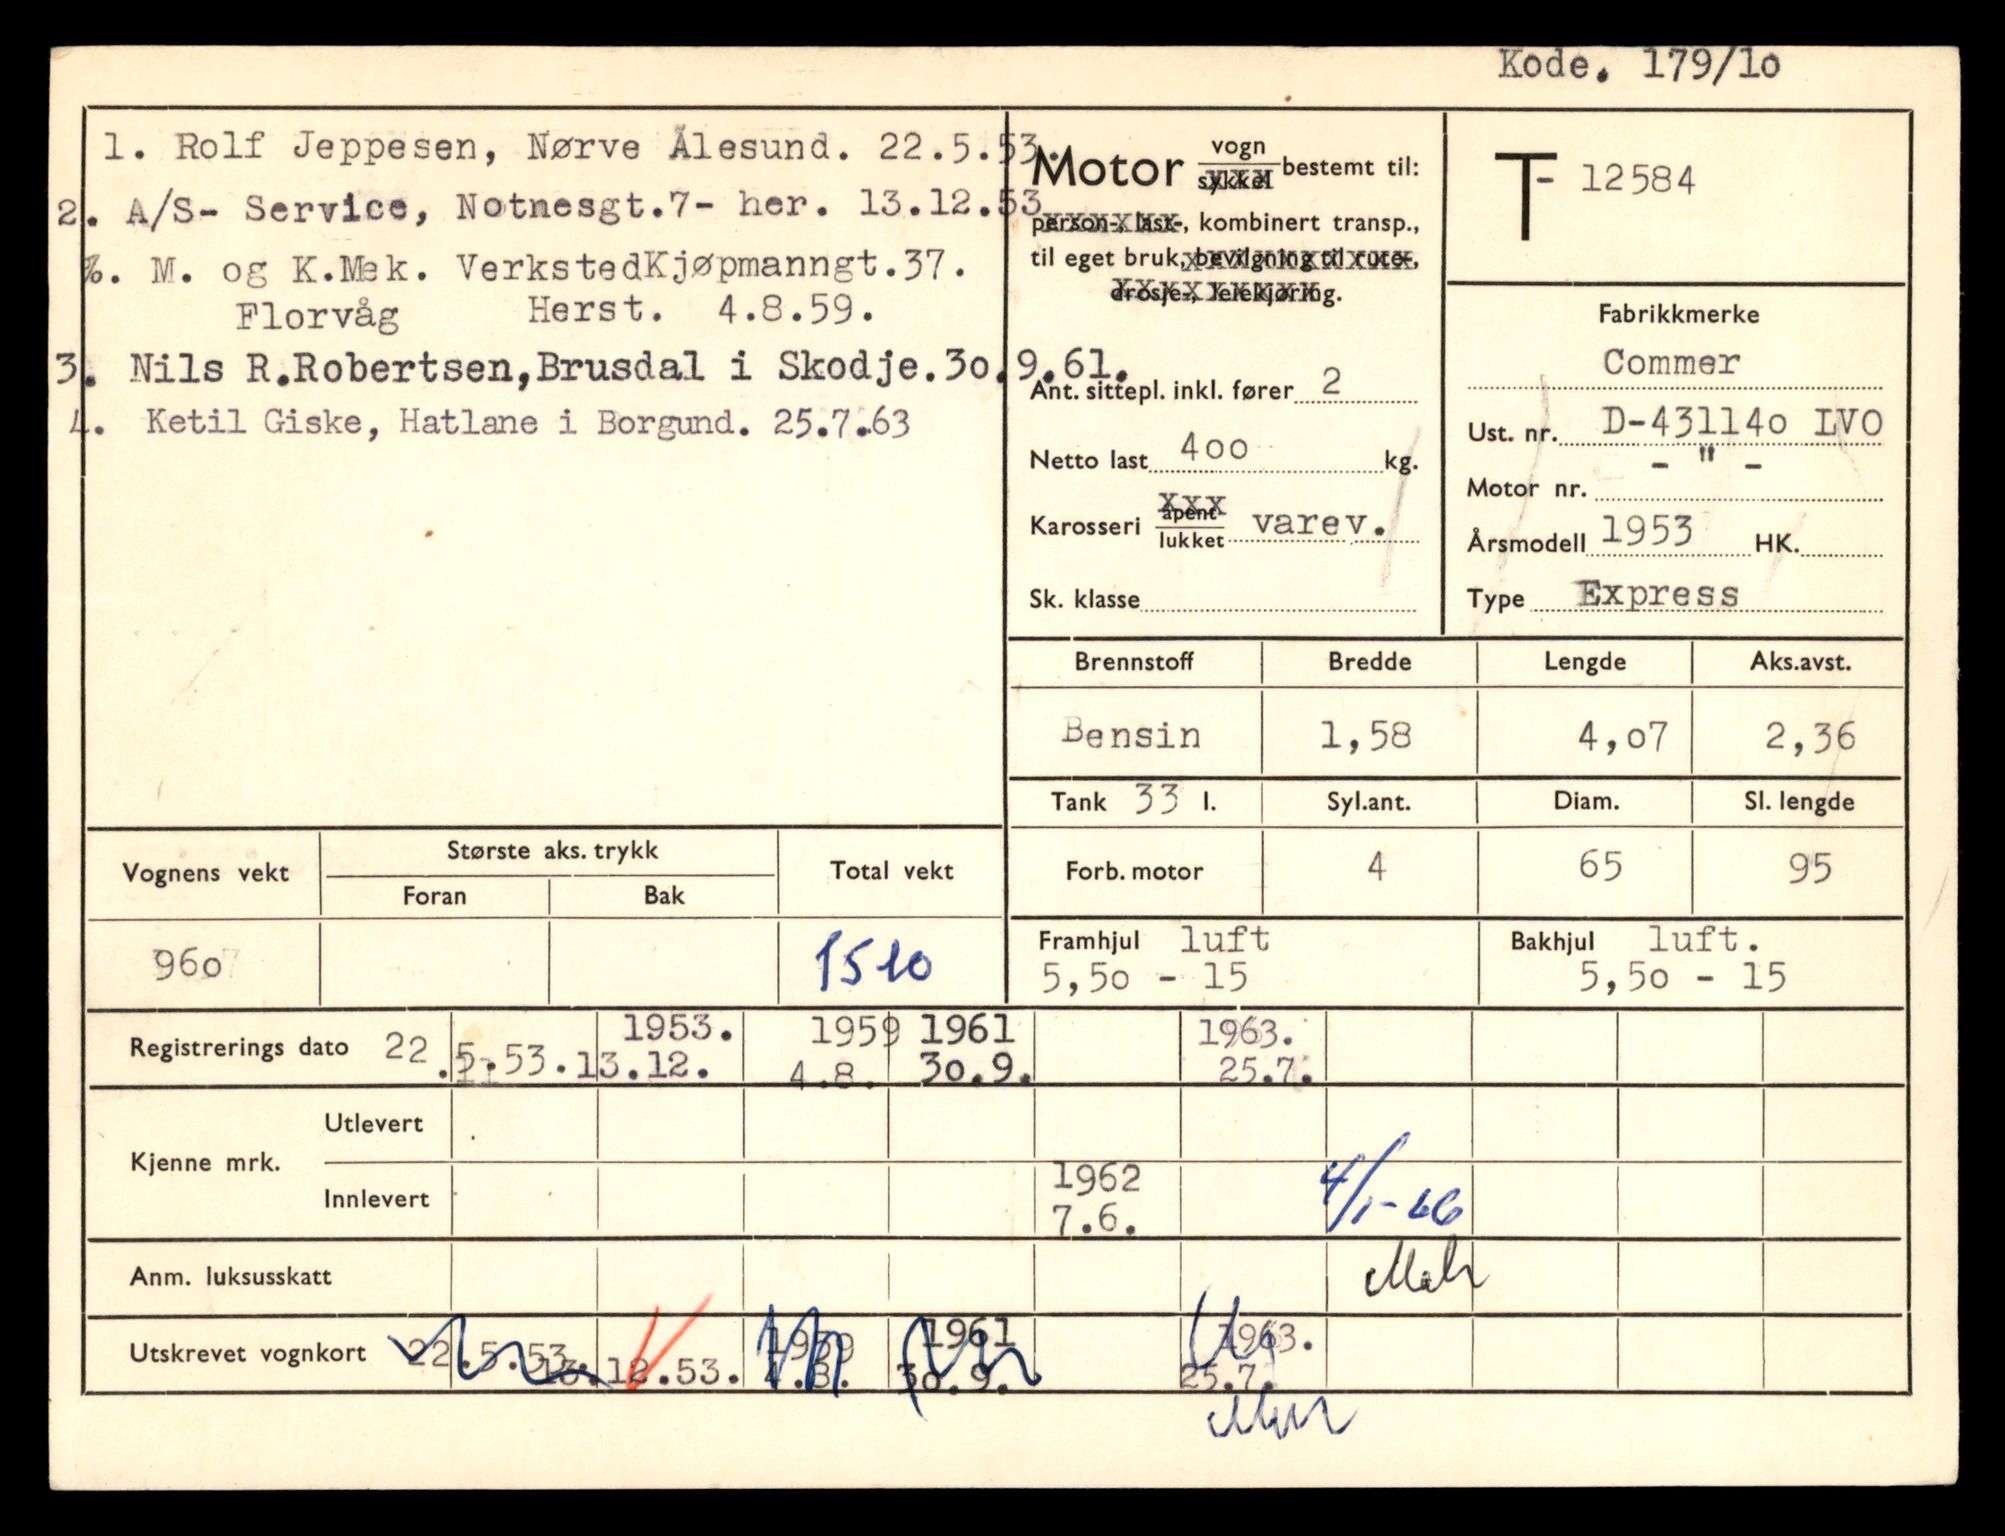 Kode. 179/10
1. Rolf Jeppesen, Nørve Ålesund. 22.5.53.
2. A/S- Service, Notnesgt.7- her. 13.12.53
%. M. og K.Mek. VerkstedKjøpmanngt.37.
Florvåg Herst. 4.8.59.
3. Nils R.Robertsen,Brusdal i Skodje.30.9.61.
4. Ketil Giske, Hatlane i Borgund. 25.7.63
Motor vogn
sykkel bestemt til:
person-, last-, kombinert transp.,
til eget bruk, bevilgning til rute-,
drosje-, leiekjøring.
Ant. sittepl. inkl. fører 2
Netto last 400 kg.
Karosseri åpent
lukket varev.
Sk. klasse
T- 12584
Fabrikkmerke
Commer
Ust. nr. D-431140 LVO
Motor nr. - " -
Årsmodell 1953 HK.
Type Express
Brennstoff Bredde Lengde Aks.avst.
Bensin 1,58 4,07 2,36
Tank 33 l. Syl.ant. Diam. Sl. lengde
Forb. motor 4 65 95
Framhjul luft
5,50 - 15
Bakhjul luft.
5,50 - 15
Vognens vekt Største aks. trykk Total vekt
Foran Bak
960 1510
Registrerings dato 22.5.53. 13.12. 1953. 1959 4.8. 1961 30.9. 1963. 25.7.
Kjenne mrk. Utlevert
Innlevert 1962 7.6. 4/1-66
Anm. luksusskatt
Utskrevet vognkort 22.5.53. 13.12.53. 1959 4.8. 1961 30.9. 1963. 25.7.